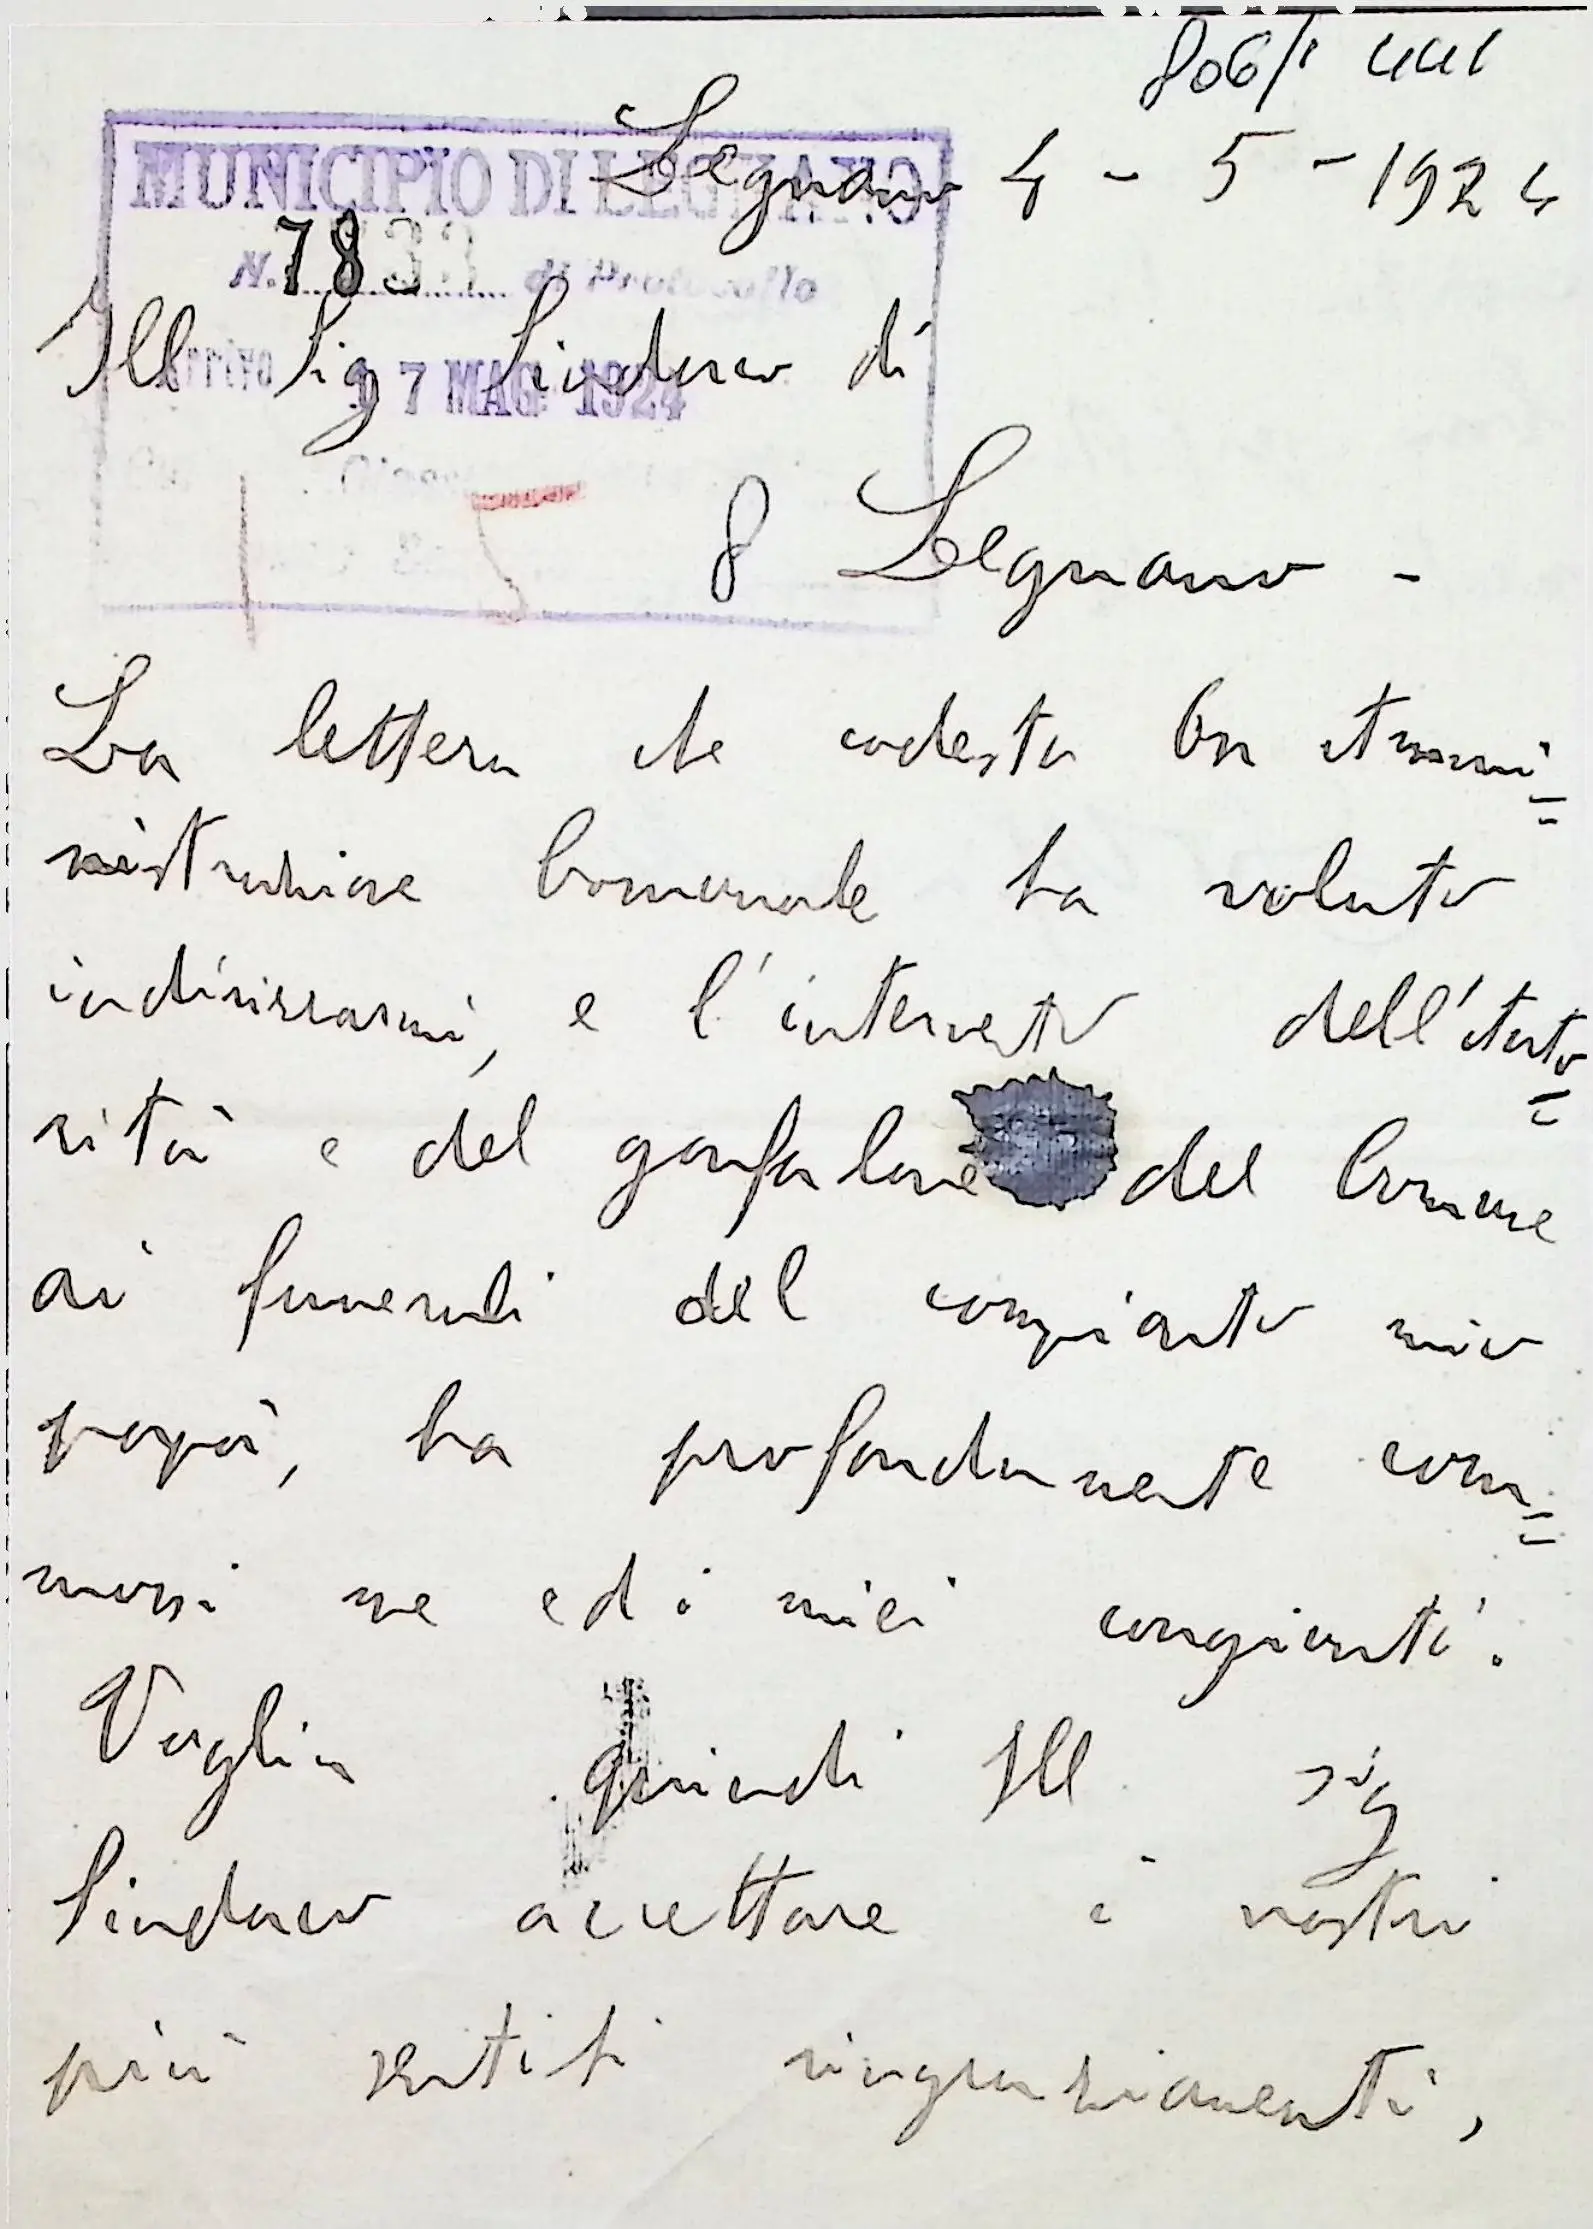 806/
Legnano 4 - 5 - 1924
MUNICIPIO DI LEGNANO
N. 7833 di Protocollo
Ill Sig Sindaco di
Arrivo 7 MAG 1924
8 Legnano -
La lettera che codesta On Ammi=
nistrazione Comunale ha voluto
indirizzarmi, e l'intervento dell'Auto=
rità e del gonfalone del Comune
ai funerali del compianto mio
papà, ha profondamente com=
mossi me ed i miei congiunti.
Voglia quindi Ill sig
Sindaco accettare i nostri
più sentiti ringraziamenti,